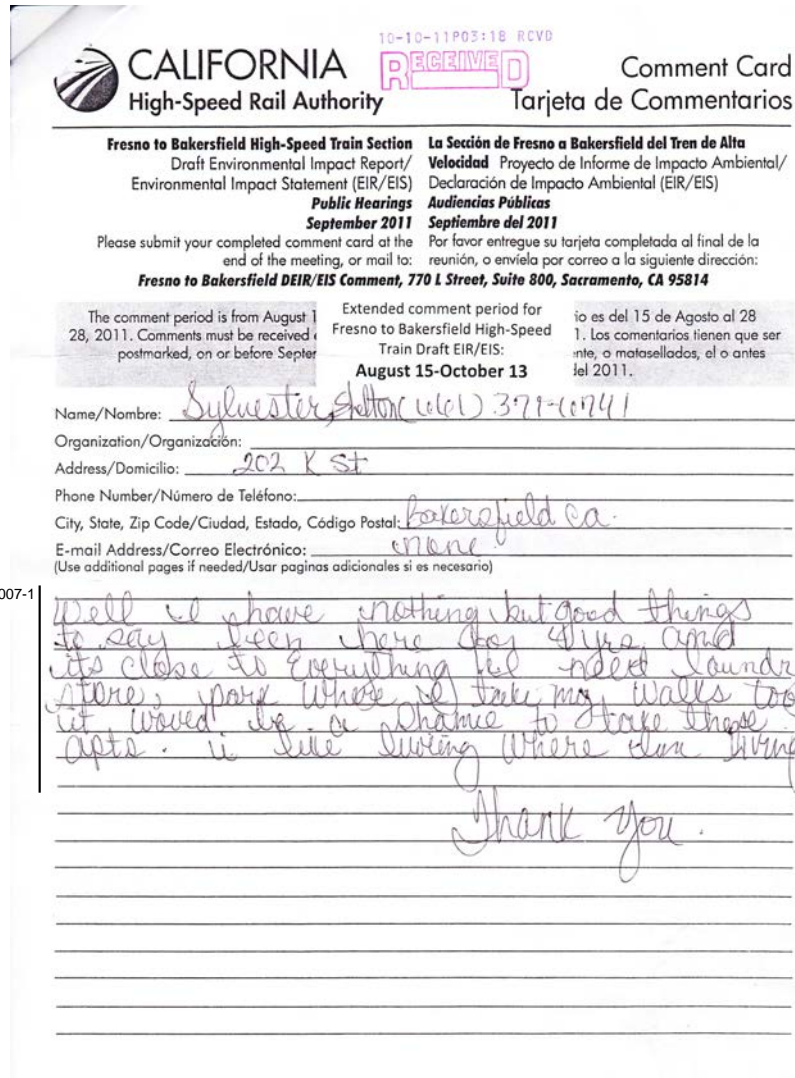 10-10-11P03:18 RCVD
RECEIVED
CALIFORNIA
High-Speed Rail Authority
Comment Card
Tarjeta de Commentarios
Fresno to Bakersfield High-Speed Train Section
Draft Environmental Impact Report/
Environmental Impact Statement (EIR/EIS)
Public Hearings
September 2011
Please submit your completed comment card at the
end of the meeting, or mail to:
La Sección de Fresno a Bakersfield del Tren de Alta
Velocidad Proyecto de Informe de Impacto Ambiental/
Declaración de Impacto Ambiental (EIR/EIS)
Audiencias Públicas
Septiembre del 2011
Por favor entregue su tarjeta completada al final de la
reunión, o envíela por correo a la siguiente dirección:
Fresno to Bakersfield DEIR/EIS Comment, 770 L Street, Suite 800, Sacramento, CA 95814
The comment period is from August 1
28, 2011. Comments must be received
postmarked, on or before Septer
Extended comment period for
Fresno to Bakersfield High-Speed
Train Draft EIR/EIS:
August 15-October 13
io es del 15 de Agosto al 28
1. Los comentarios tienen que ser
nte, o matasellados, el o antes
del 2011.
Name/Nombre: Sylvester Shelton (661) 371-6741
Organization/Organización:
Address/Domicilio: 202 K St
Phone Number/Número de Teléfono:
City, State, Zip Code/Ciudad, Estado, Código Postal: Bakersfield Ca.
E-mail Address/Correo Electrónico: none
(Use additional pages if needed/Usar paginas adicionales si es necesario)
007-1
Well I have nothing but good things
to say been here for 4yrs and
its close to Everything I need Laundr
store, park where I take my walks too
it woved be a shame to take these
apts. i like living where I am living
Thank You.